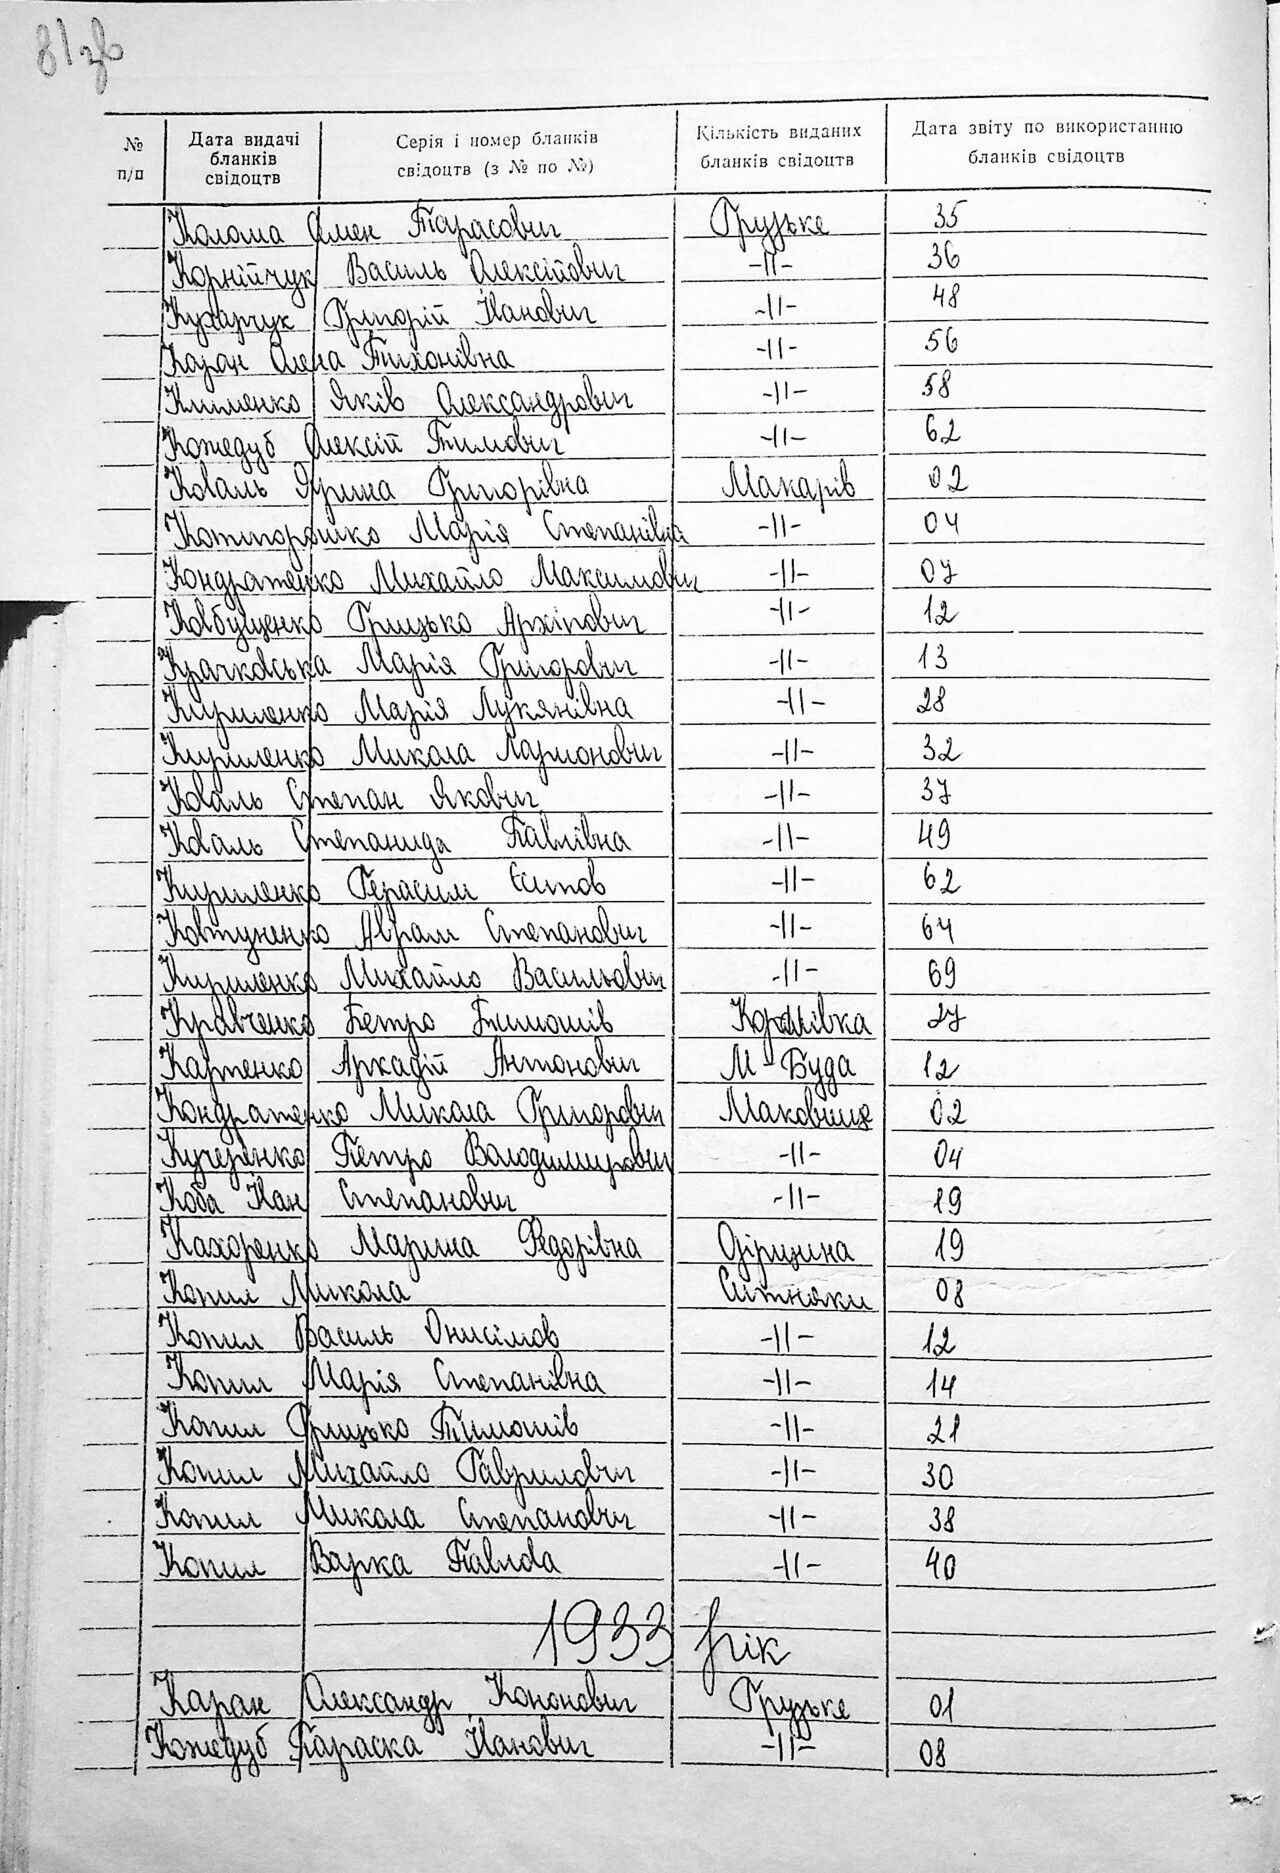 81зв
№ п/п | Дата видачі бланків свідоцтв | Серія і номер бланків свідоцтв (з № по №) | Кількість виданих бланків свідоцтв | Дата звіту по використанню бланків свідоцтв
Колома Омен Тарасович Грузьке 35
Корнійчук Василь Олексійович -||- 36
Кухарчук Григорій Іванович -||- 48
Каран Олена Тихонівна -||- 56
Клименко Яків Олександрович -||- 58
Кожедуб Олексій Тимович -||- 62
Коваль Ярина Григорівна Макарів 02
Котпорошко Марія Степанівна -||- 04
Кондратенко Михайло Максимович -||- 07
Ковбущенко Грицько Архіпович -||- 12
Крачковська Марія Григорович -||- 13
Кириленко Марія Лукянівна -||- 28
Кириленко Микола Ларіонович -||- 32
Коваль Степан Якович -||- 37
Коваль Степанида Павлівна -||- 49
Кириленко Герасим Єсипов -||- 62
Ковтуненко Аврам Степанович -||- 64
Кириленко Михайло Васильович -||- 69
Кравченко Петро Тимошів Королівка 27
Карпенко Аркадій Антонович М-Буда 12
Кондратенко Микола Григорович Маковище 02
Кучеренко Петро Володимирович -||- 04
Коба Іван Степанович -||- 19
Кахоренко Марина Федорівна 19
Копил Микола Ситняки 08
Копил Василь Онисімов -||- 12
Копил Марія Степанівна -||- 14
Копил Грицько Тимошів -||- 21
Копил Михайло Гаврилович -||- 30
Копил Микола Степанович -||- 38
Копил Варка Павлова -||- 40
1933 рік
Каран Олександр Кононович Грузьке 01
Кожедуб Параска Іванович -||- 08